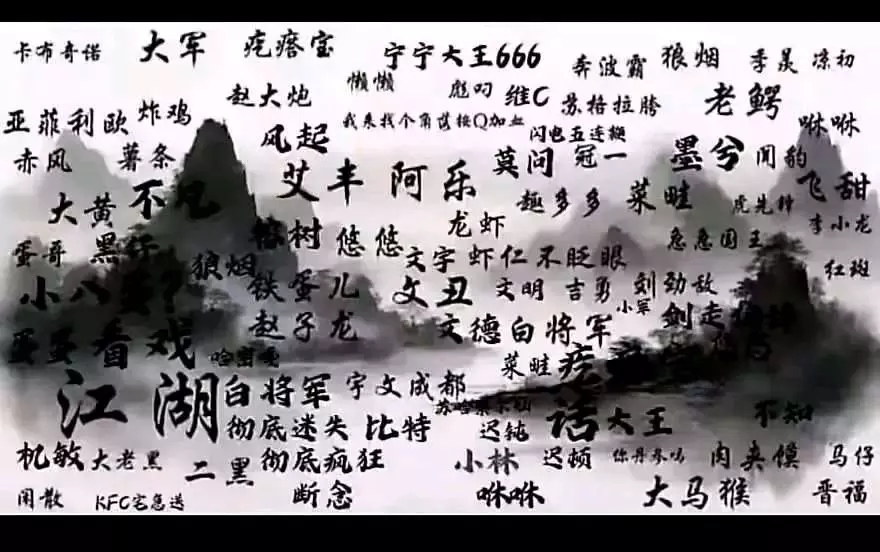 卡布奇诺 大军 疙瘩宝 宁宁大王666 奔波霸 狼烟 季晟 凉初
赵大炮 懒懒 彪叼 维C 苏格拉胯 老鳄
亚菲利欧 炸鸡 风起 我来找个角落按Q加血 闪电五连鞭 咻咻
赤风 薯条 莫问 冠一 墨兮 闻豹
大黄 不凡 艾丰 阿乐 趣多多 菜畦 飞甜
虎先锋 李小龙
蛋哥 树 悠悠 龙虾 急急国王
狼烟 文字 虾仁不眨眼 红斑
小八 铁蛋儿 文丑 文明 吉勇 刘 劲敌
小军
蛋蛋看戏 赵子龙 文德白将军 剑走
菜畦
江湖 白将军 宇文成都
彻底迷失 比特 迟钝 话 大王 不知
机敏 大老黑 二黑 彻底疯狂 小林 迟顿 肉夹馍 马仔
闲散 KFC宅急送 断念 咻咻 大马猴 晋福